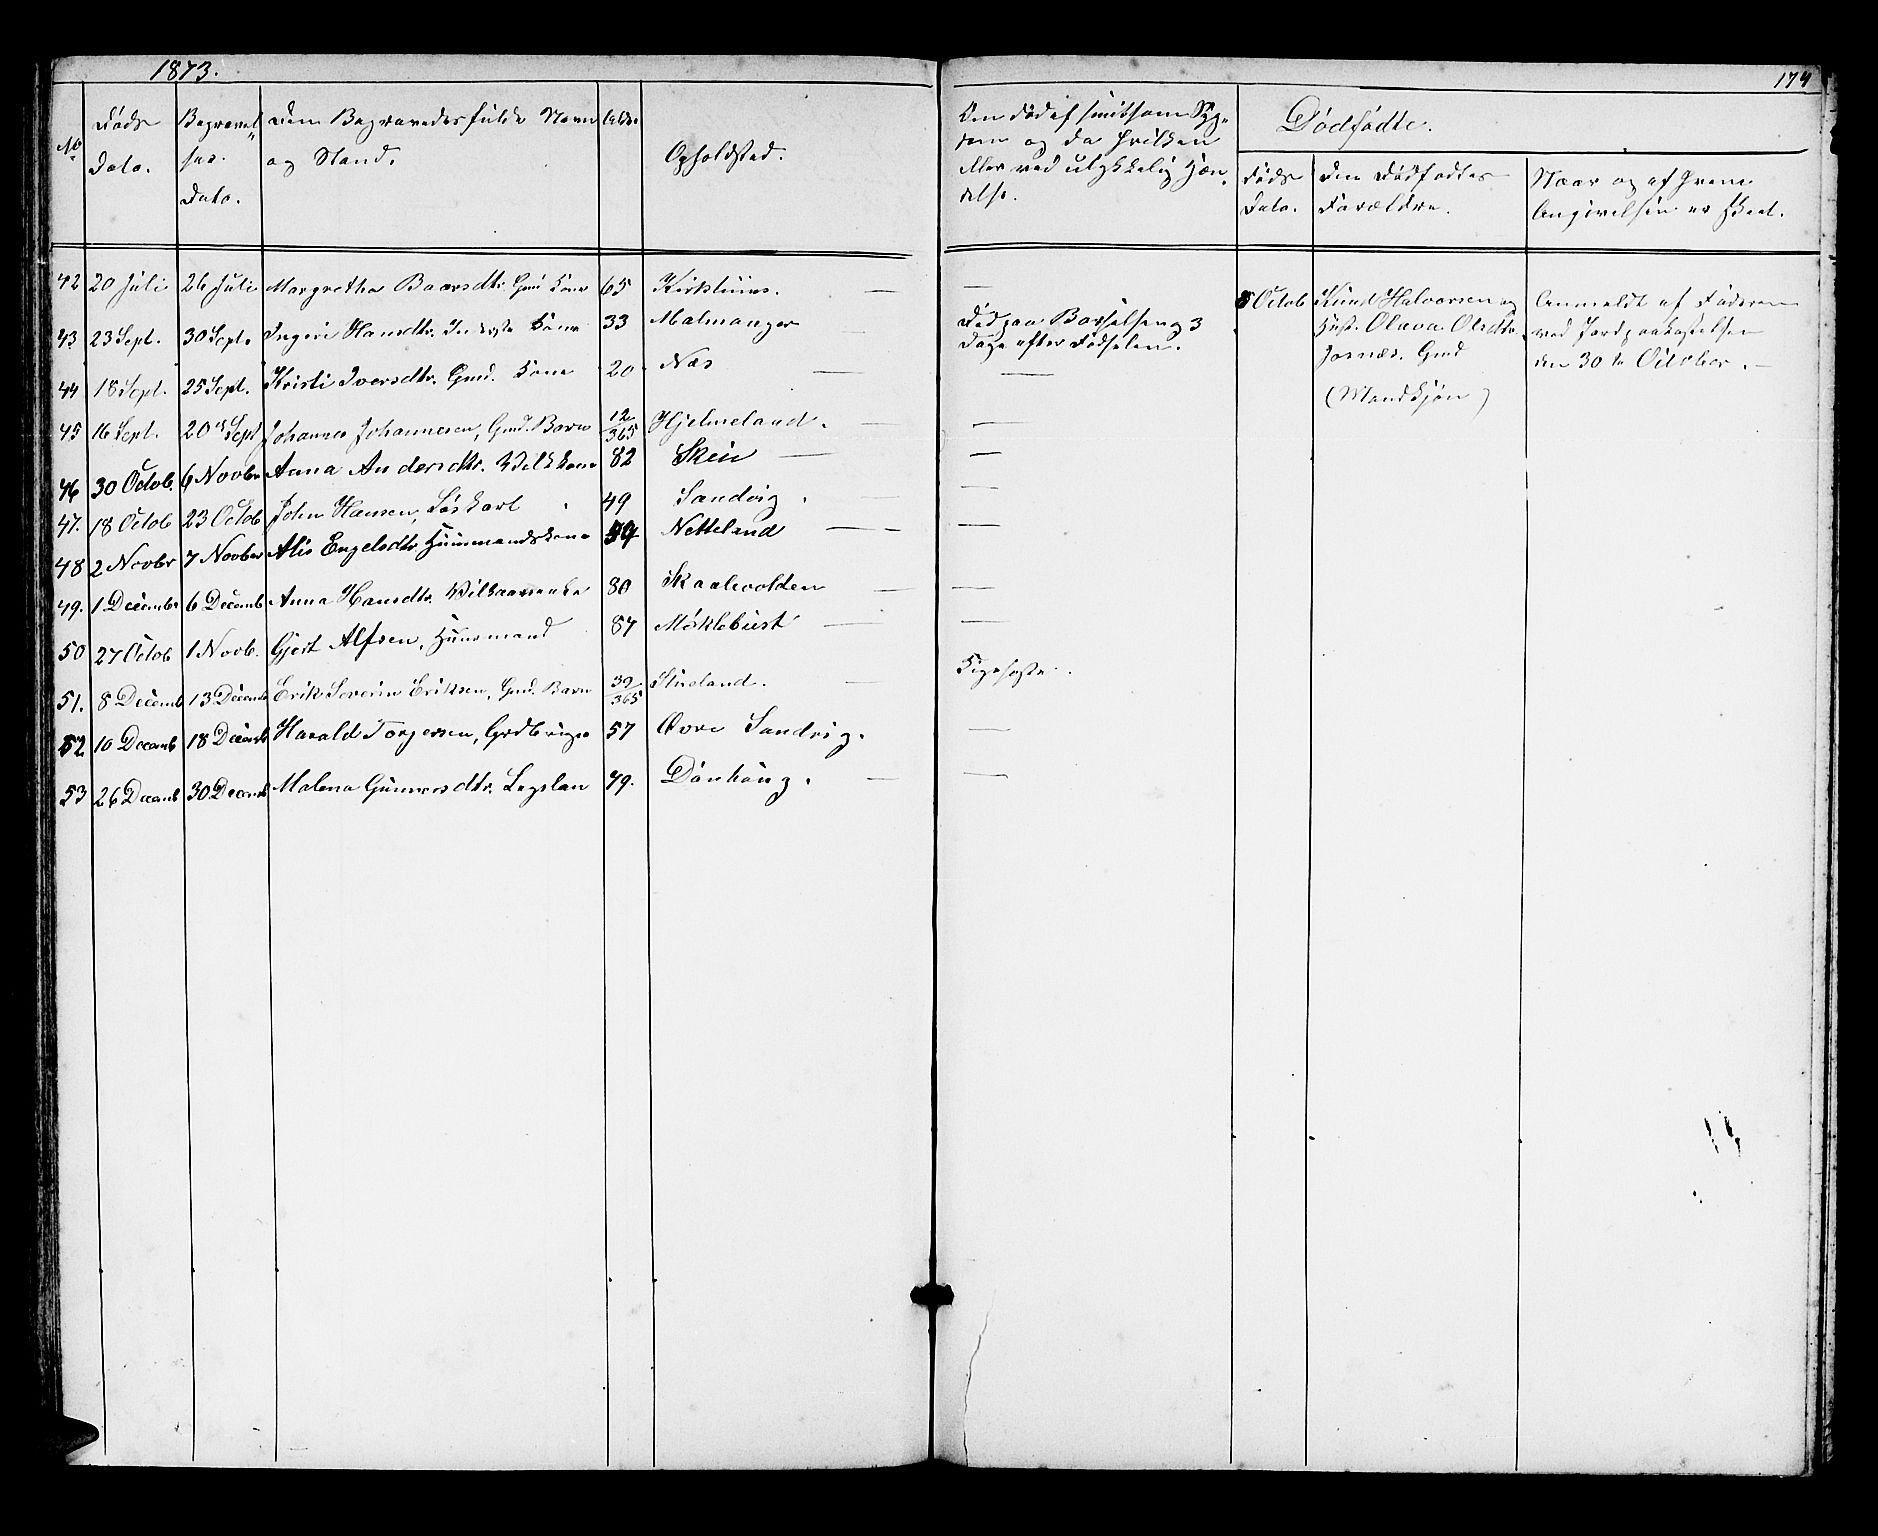 1873.
174
No
Døds
Dato.
Begravel-
ses.
Dato.
Den Begravedes fulde Navn
og Stand.
Alder
Opholdsted.
Om død af smitsom Syg-
dom og da hvilken
eller ved ulykkelig Hæn-
delse.
Dødfødte.
Føds
Dato.
Den Dødfødtes
Forældre.
Naar og af hvem
Angivelsen er skeet.
42 20 Juli 26 Juli Margretha Baarsdtr. Gmd Kone 65 Kirkhuus. — —
43 23 Sept. 30 Sept. Ingeri Hansdtr. Inderste Kone 33 Malmanger — Død paa Barselseng 3
Dage efter Fødselen.
44 18 Sept. 25 Sept. Kristi Iversdtr. Gmd. Kone 20 Næs — —
45 16 Sept. 20 Sept Johannes Johannesen, Gmd. Barn 12/365 Hjelmeland. —
46 30 Octob. 6 Novbr Anna Andersdtr. Kone 82 Skeie — —
47. 18 Octob 23 Octob John Hansen, Løskarl 49 Sandvig. — —
48 2 Novbr 7 Novber Alis Engelsdtr Huusmandskone 59 Netteland — —
49. 1 Decembr 6 Decemb Anna Hansdtr. Vilkaarsenke 80 Skaalvolden — —
50 27 Octob 1 Novb. Gjert Alfsen, Huusmand 87 Møklebust — —
51. 8 Decemb 13 Decemb Erik Severin Eriksen, Gmd. Barn 39/365 Stueland. — Kighoste.
52 10 Decemb 18 Decemb Harald Torgersen, Grdbruger 57 Øvre Sandvig. —
53 26 Decemb 30 Decemb Malena Gunnersdtr. Legslem 79. Dønhaug. — —
8 Octob
Knud Halvorsen og
Hust. Olava Olsdtr.
Gmd
(Mandkjøn)
Anmeldt af Faderen
ved Jordpaakastelsen
den 30te October. —